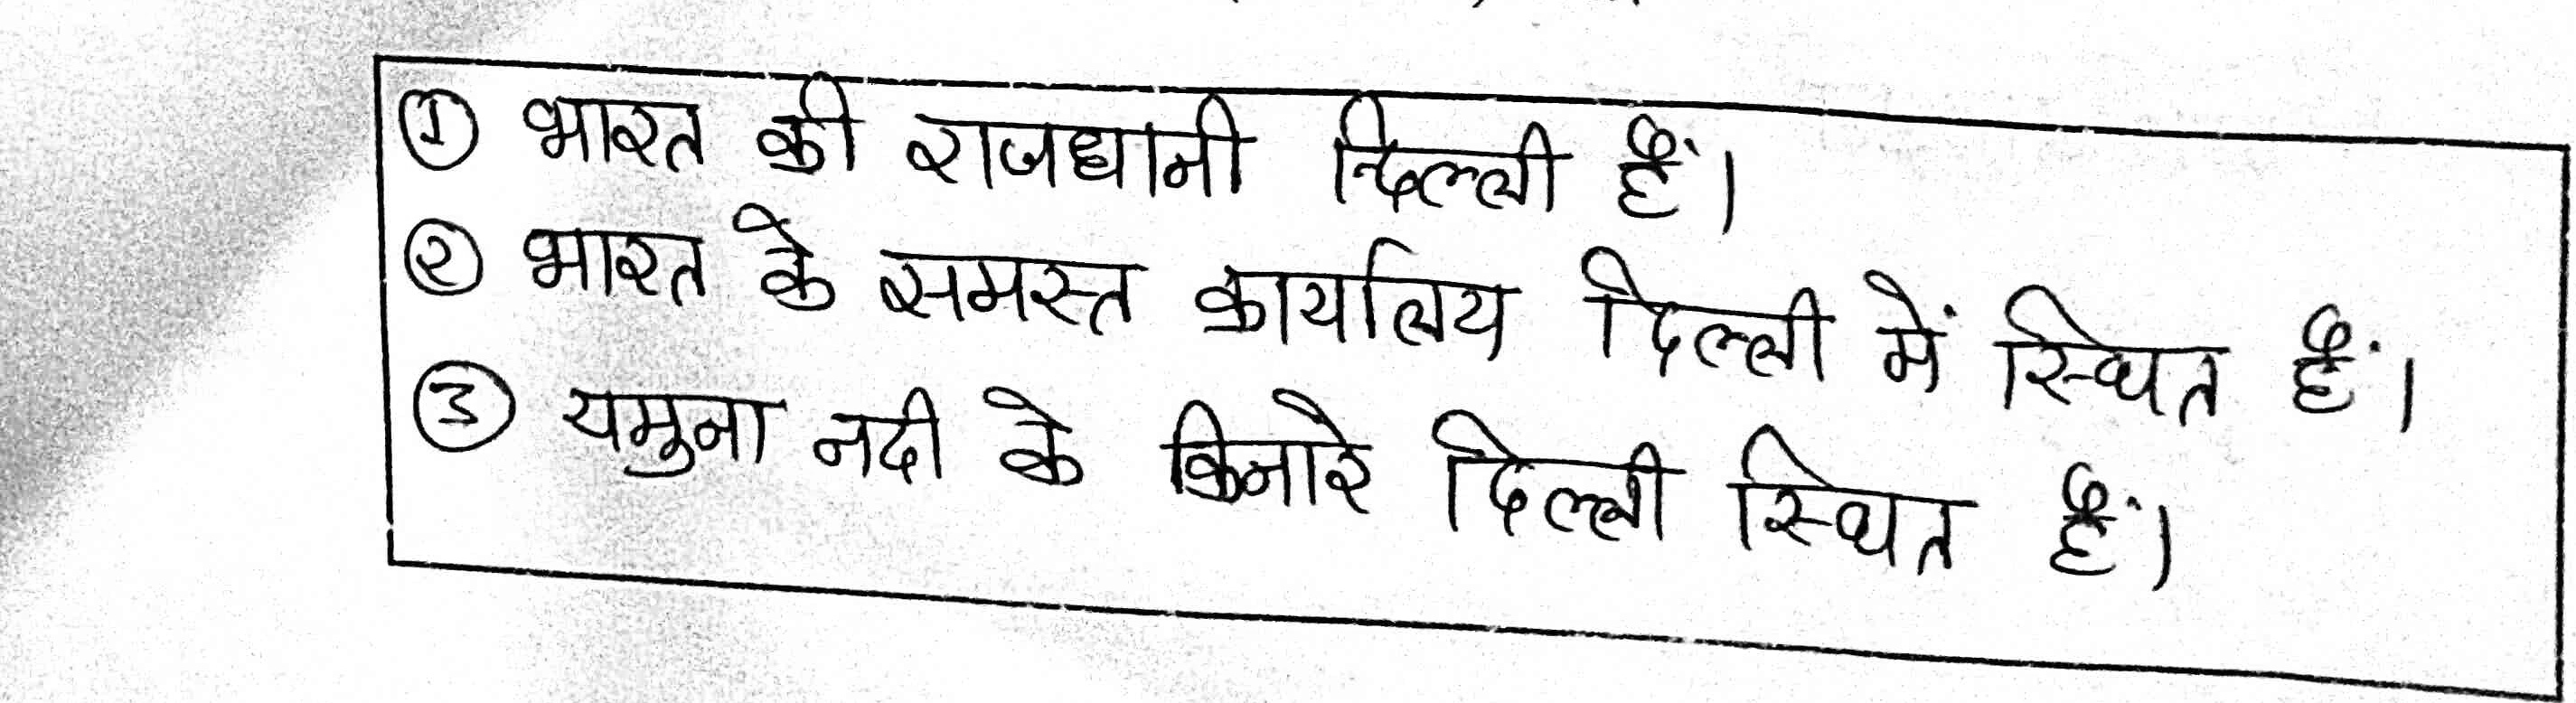 ① भारत की राजधानी दिल्ली हैं।
② भारत के समस्त कार्यालय दिल्ली में स्थित हैं।
③ यमुना नदी के किनारे दिल्ली स्थित हैं।